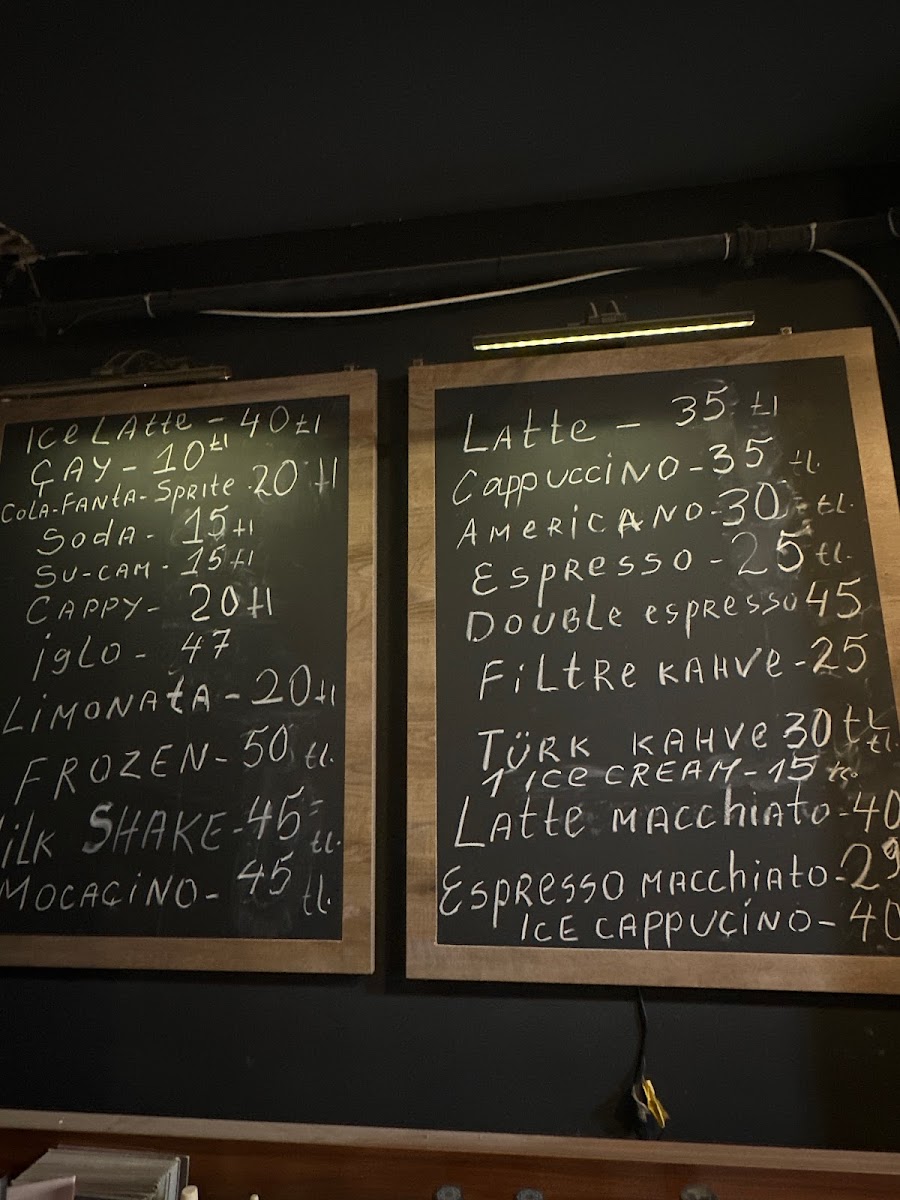 ice LAtte - 40 tl
ÇAY - 10 tl
Cola-FANtA-SpRite - 20 tl
Soda - 15 tl
Su-CAM - 15 tl
CAPPY - 20 tl
iglo - 47
LiMONAtA - 20 tl
FROZEN - 50 tl.
ilk SHAKE - 45 tl.
MOCACiNO - 45 tl.
LAtte - 35 tl
CAppuCCiNO - 35 tl.
AMeRiCANO - 30 tl.
Espresso - 25 tl.
DOUBLe espresso 45
FiLtRe KAHVe - 25
TÜRK KAHVe 30 tl
1 ice CREAM - 15 tl.
LAtte MACChiAto - 40
ESpReSSO MACChiAto - 29
ICE CAPPUÇiNO - 40